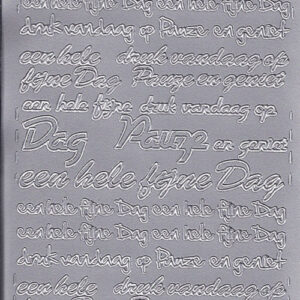 een hele fijne Dag een hele fijne Dag
druk vandaag op Pauze en geniet
een hele druk vandaag op
fijne Dag Pauze en geniet
een hele fijne druk vandaag op
Dag Pauze en geniet
een hele fijne Dag
een hele fijne Dag een hele fijne Dag
een hele fijne Dag een hele fijne Dag
druk vandaag op Pauze en geniet
een hele druk vandaag op